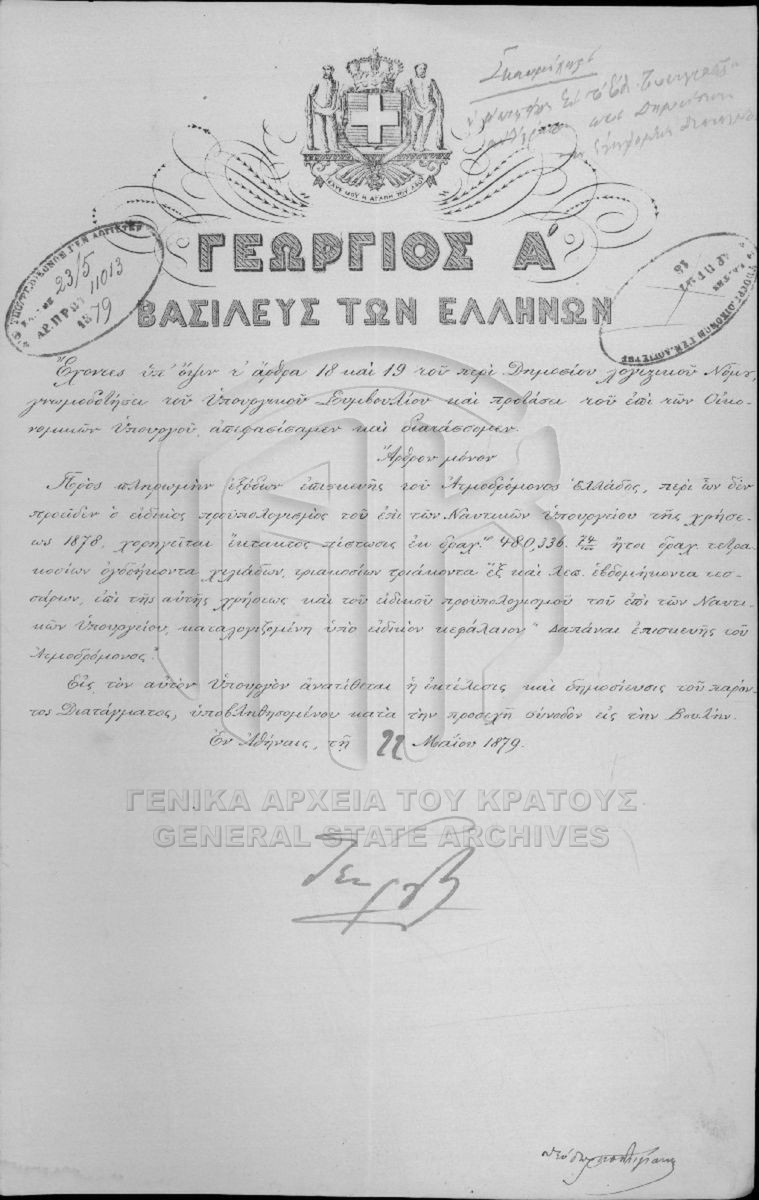 ΙΣΧΥΣ ΜΟΥ Η ΑΓΑΠΗ ΤΟΥ ΛΑΟΥ
ΓΕΩΡΓΙΟΣ Α΄
ΒΑΣΙΛΕΥΣ ΤΩΝ ΕΛΛΗΝΩΝ
23/5
ΑΡ.ΠΡΩΤ 11013
1879
Ἔχοντες ὑπ' ὄψιν τ' ἄρθρα 18 καὶ 19 τοῦ περὶ Δημοσίου λογιστικοῦ Νόμου,
γνωμοδοτήσει τοῦ Ὑπουργικοῦ Συμβουλίου καὶ προτάσει τοῦ ἐπὶ τῶν Οἰκο-
νομικῶν Ὑπουργοῦ, ἀπεφασίσαμεν καὶ διατάσσομεν.
Ἄρθρον μόνον
Πρὸς πληρωμὴν ἐξόδων ἐπισκευῆς τοῦ Ἀτμοδρόμονος Ἑλλάδος, περὶ ὧν δὲν
προεῖδεν ὁ εἰδικὸς προϋπολογισμὸς τοῦ ἐπὶ τῶν Ναυτικῶν Ὑπουργείου τῆς χρήσε-
ως 1878, χορηγεῖται ἔκτακτος πίστωσις ἐκ δραχ. 480,336.74 ἤτοι δραχ. τετρα-
κοσίων ὀγδοήκοντα χιλιάδων, τριακοσίων τριάκοντα ἓξ καὶ λεπ. ἑβδομήκοντα τεσ-
σάρων, ἐπὶ τῆς αὐτῆς χρήσεως καὶ τοῦ εἰδικοῦ προϋπολογισμοῦ τοῦ ἐπὶ τῶν Ναυτι-
κῶν Ὑπουργείου, καταλογιζομένη ὑπὸ εἰδικὸν κεφάλαιον "Δαπάναι ἐπισκευῆς τοῦ
Ἀτμοδρόμονος".
Εἰς τὸν αὐτὸν Ὑπουργὸν ἀνατίθεται ἡ ἐκτέλεσις καὶ δημοσίευσις τοῦ παρόν-
τος Διατάγματος, ὑποβληθησομένου κατὰ τὴν προσεχῆ σύνοδον εἰς τὴν Βουλήν.
Ἐν Ἀθήναις, τῇ 22 Μαΐου 1879.
ΓΕΝΙΚΑ ΑΡΧΕΙΑ ΤΟΥ ΚΡΑΤΟΥΣ
GENERAL STATE ARCHIVES